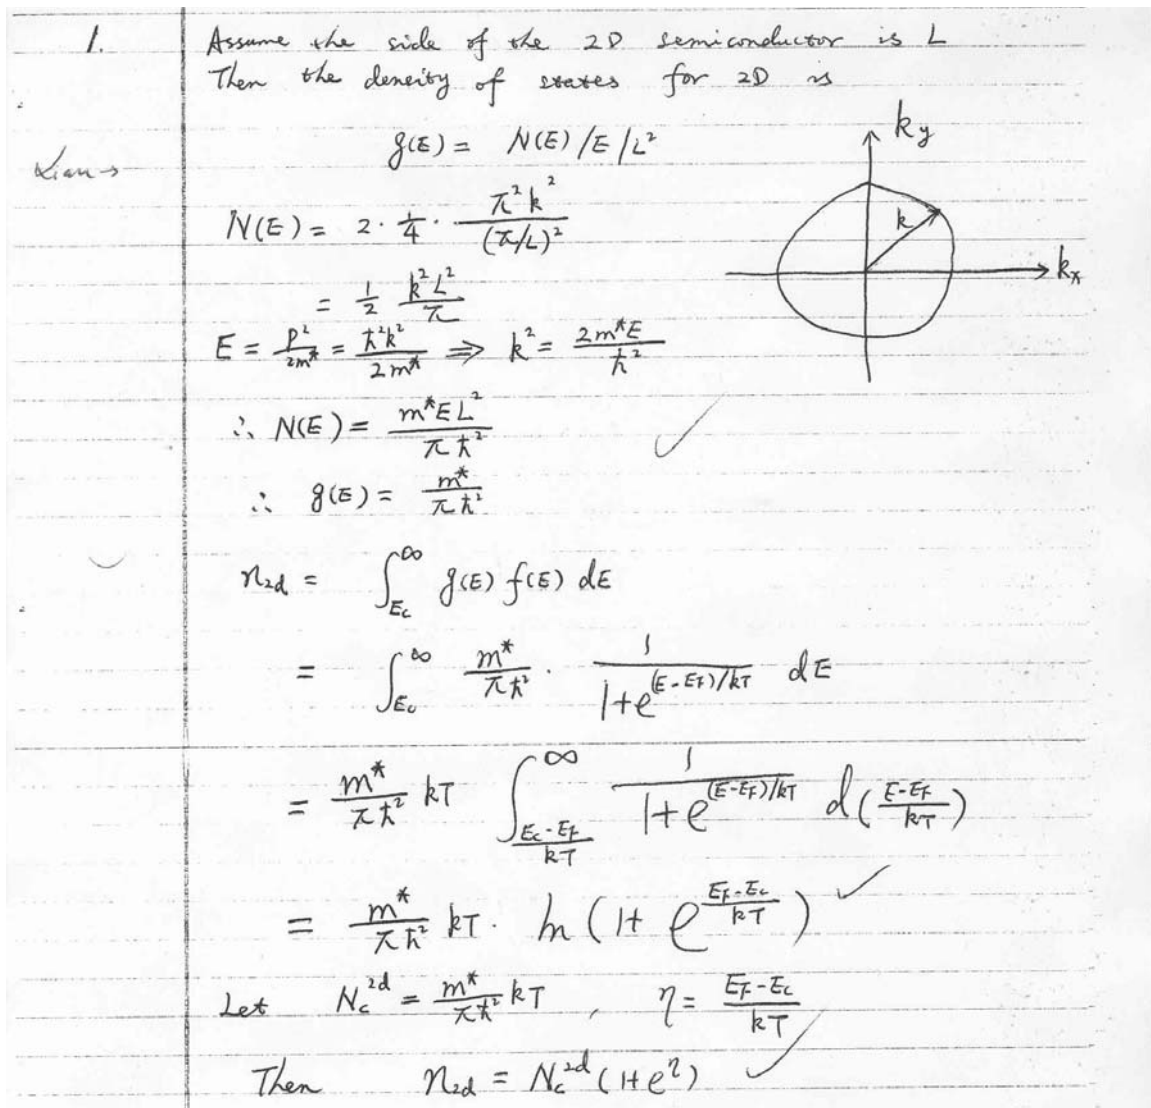 1. Assume the side of the 2D semiconductor is L
Then the density of states for 2D is
g(E) = N(E)/E/L²
k_y
N(E) = 2 · 1/4 · π²k²/(π/L)²
k
k_x
= 1/2 k²L²/π
E = p²/2m* = ħ²k²/2m* ⇒ k² = 2m*E/ħ²
∴ N(E) = m*EL²/πħ²
∴ g(E) = m*/πħ²
n_2d = ∫_{E_c}^∞ g(E) f(E) dE
= ∫_{E_c}^∞ m*/πħ² · 1/(1+e^{(E-E_f)/kT}) dE
= m*/πħ² kT ∫_{(E_c-E_f)/kT}^∞ 1/(1+e^{(E-E_f)/kT}) d((E-E_f)/kT)
= m*/πħ² kT · ln(1+e^{(E_f-E_c)/kT})
Let N_c^{2d} = m*/πħ² kT , η = (E_f-E_c)/kT
Then n_2d = N_c^{2d}(1+e^η)